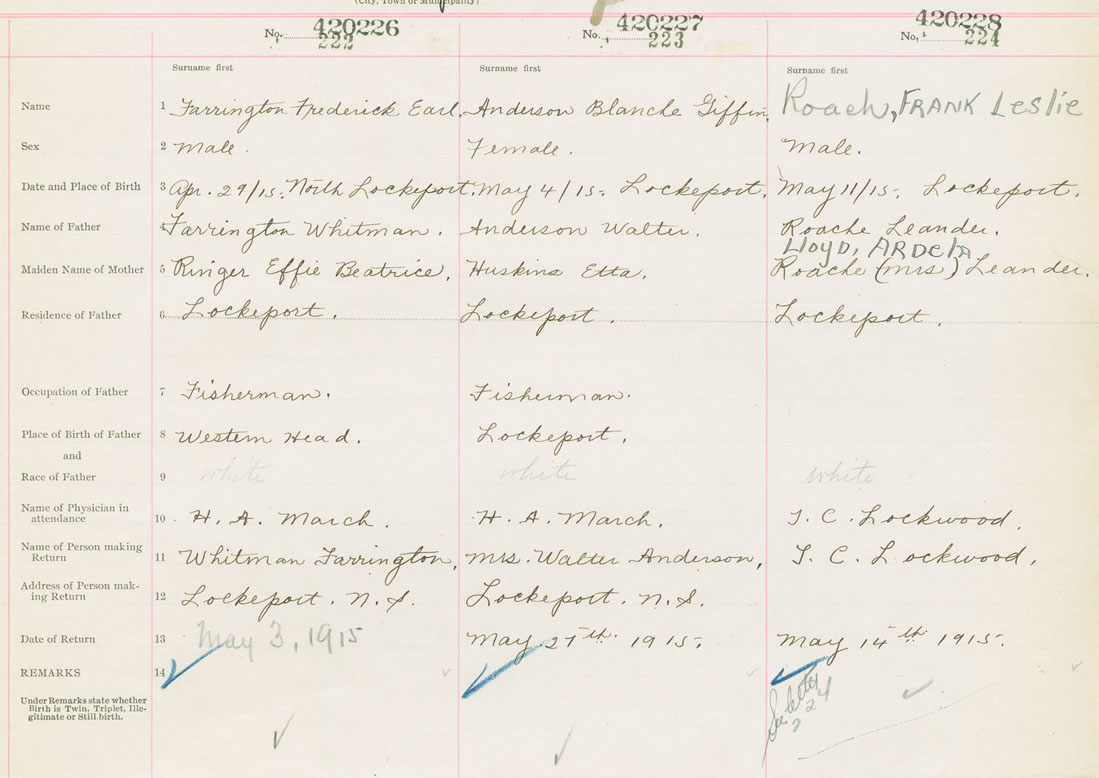 (City, Town or Municipality)
No. 420226 No. 420227 No. 420228
222 223 224
Surname first Surname first Surname first
Name 1 Farrington Frederick Earl. Anderson Blanche Giffin. Roach, FRANK Leslie
Sex 2 Male. Female. Male.
Date and Place of Birth 3 Apr. 29/15. North Lockeport. May 4/15. Lockeport. May 11/15. Lockeport.
Name of Father 4 Farrington Whitman. Anderson Walter. Roache Leander.
Lloyd, ARDELA
Maiden Name of Mother 5 Ringer Effie Beatrice. Huskins Etta. Roache (Mrs) Leander.
Residence of Father 6 Lockeport. Lockeport. Lockeport.
Occupation of Father 7 Fisherman. Fisherman.
Place of Birth of Father 8 Western Head. Lockeport.
and
Race of Father 9 white white white
Name of Physician in
attendance 10 H. A. March. H. A. March. S. C. Lockwood.
Name of Person making
Return 11 Whitman Farrington. Mrs. Walter Anderson. S. C. Lockwood.
Address of Person mak-
ing Return 12 Lockeport. N.S. Lockeport. N.S.
Date of Return 13 May 3, 1915 May 27th. 1915. May 14th 1915.
REMARKS 14
Under Remarks state whether
Birth is Twin, Triplet, Ille-
gitimate or Still birth.
See letter
224